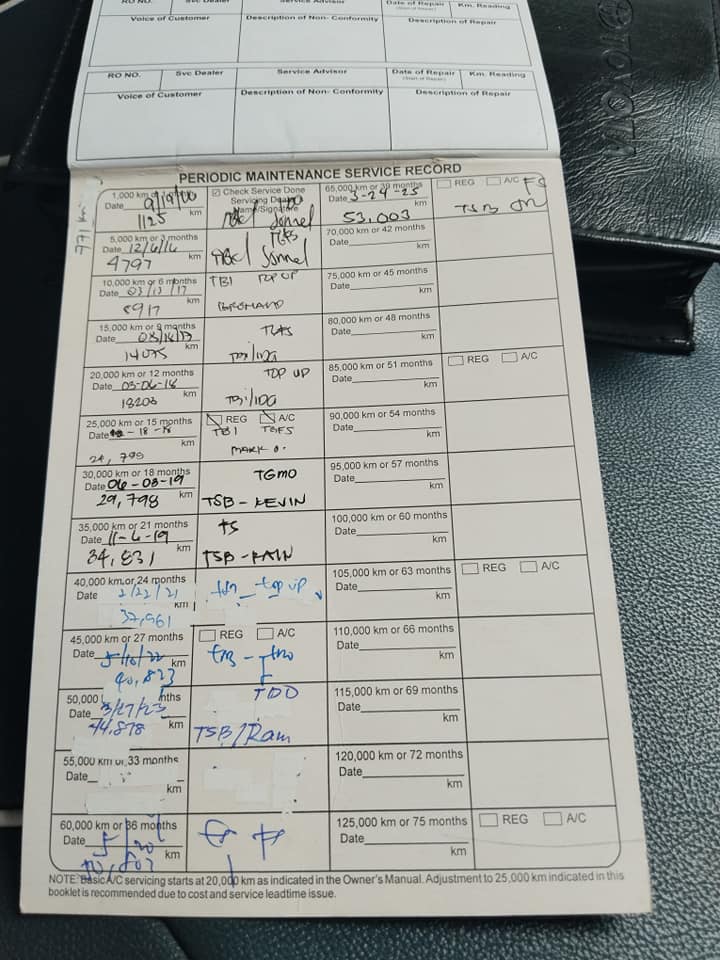 RO NO. Svc Dealer Service Advisor Date of Repair Km. Reading
Voice of Customer Description of Non- Conformity Description of Repair
RO NO. Svc Dealer Service Advisor Date of Repair Km. Reading
Voice of Customer Description of Non- Conformity Description of Repair
TOYOTA
PERIODIC MAINTENANCE SERVICE RECORD
771 km
1,000 km
Date
1125 km
☑ Check Service Done
Servicing Dealer
Name/Signature
5,000 km or 3 months
Date 12/6/16
4797 km
10,000 km or 6 months
Date 03/13/17
8917 km
TBI TOP UP
15,000 km or 9 months
Date
14075 km
20,000 km or 12 months
Date 03-06-18
18203 km
TOP UP
25,000 km or 15 months
Date - 18 - 18
km
24, 795
REG A/C
TBI TGFS
MARK O.
30,000 km or 18 months
Date 06-03-19
29,798 km
TGMO
TSB - KEVIN
35,000 km or 21 months
Date 11-6-19
34,831 km
TS
TSB - RAIN
40,000 km or 24 months
Date 2/22/21
km
37,961
top up
45,000 km or 27 months
Date 5/10/22
km
40,823
REG A/C
50,000 nths
Date 3/27/23
44,878 km
TDO
TSB/Ram
55,000 km or 33 months
Date
km
60,000 km or 36 months
Date
km
65,000 km or 39 months
Date 3-24-25
53,003
REG A/C FS
TSB
70,000 km or 42 months
Date
km
75,000 km or 45 months
Date
km
80,000 km or 48 months
Date
km
85,000 km or 51 months
Date
km
REG A/C
90,000 km or 54 months
Date
km
95,000 km or 57 months
Date
km
100,000 km or 60 months
Date
km
105,000 km or 63 months
Date
km
REG A/C
110,000 km or 66 months
Date
km
115,000 km or 69 months
Date
km
120,000 km or 72 months
Date
km
125,000 km or 75 months
Date
km
REG A/C
NOTE: Basic A/C servicing starts at 20,000 km as indicated in the Owner's Manual. Adjustment to 25,000 km indicated in this
booklet is recommended due to cost and service leadtime issue.